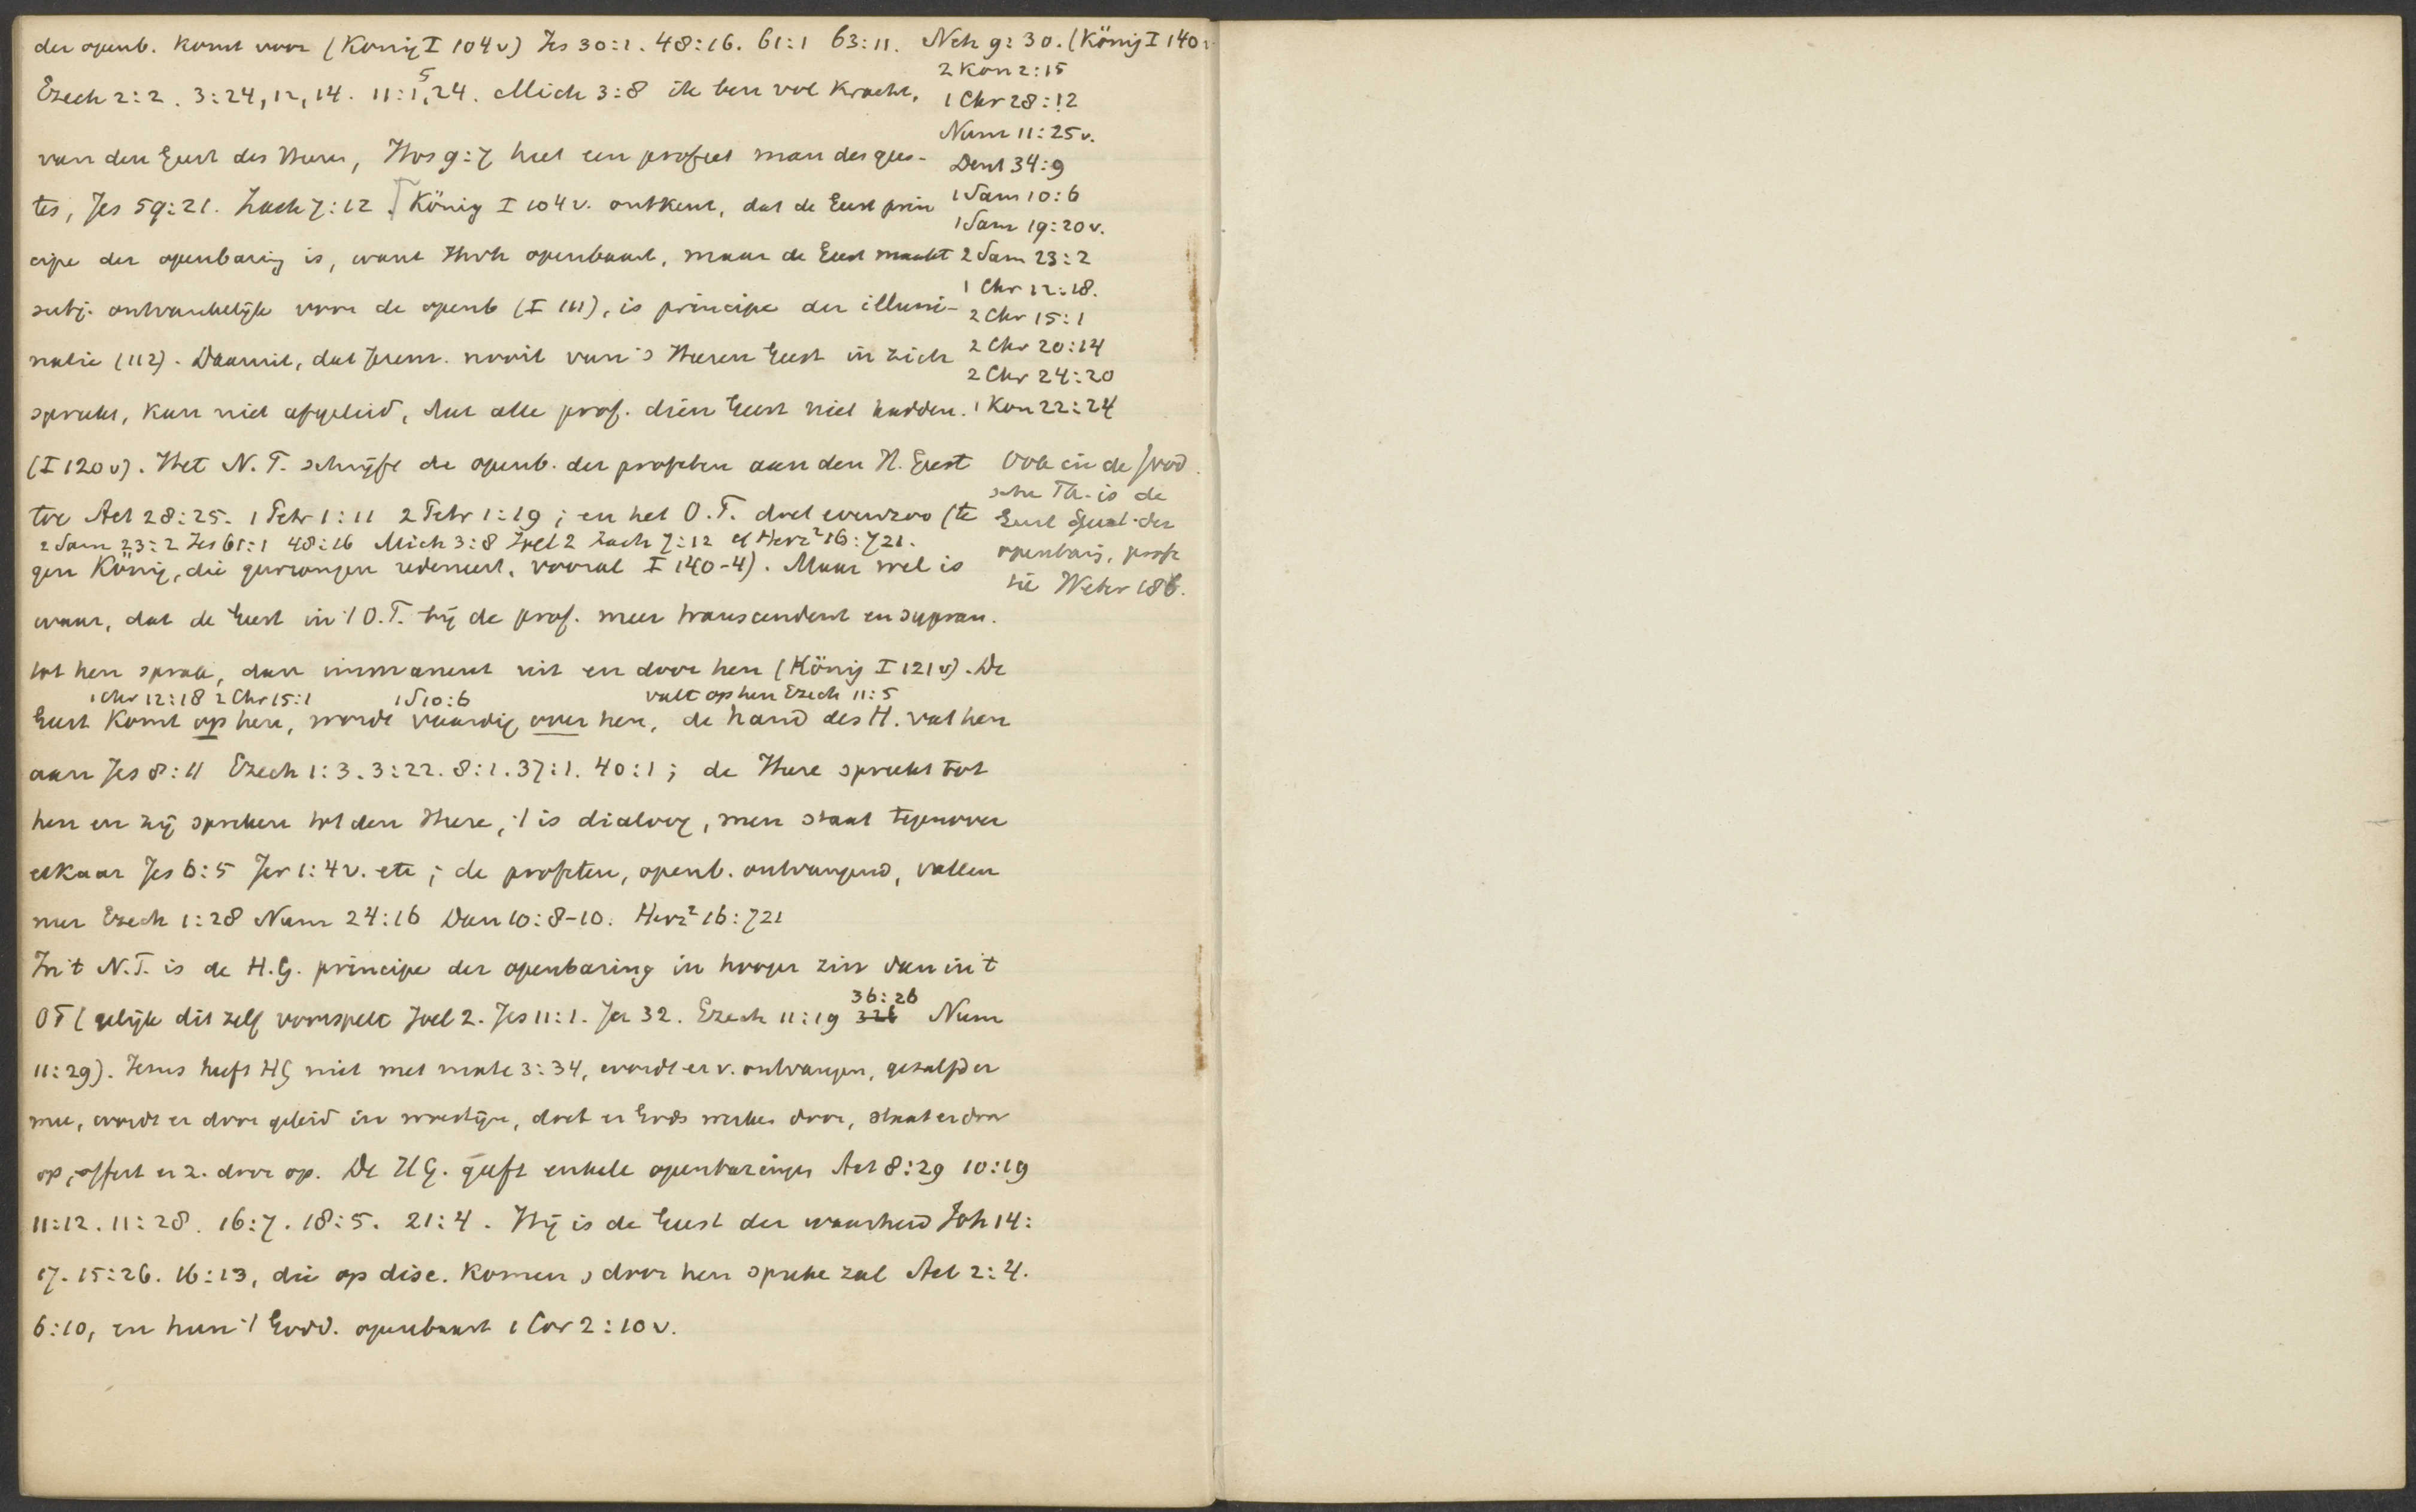 der openb. komt voor (König I 104v) Jes 30:1. 48:16. 61:1 63:11. Neh 9:30. (König I 140v
Ezech 2:2. 3:24, 12, 14. 11:1, 5, 24. Mich 3:8 ik ben vol kracht,
van den Geest des Heren, Hos 9:7 heet een profeet man des gees-
tes, Jes 59:21. Zach 7:12. König I 104v. ontkent, dat de Geest prin
cipe der openbaring is, want Jhvh openbaart, maar de Geest maakt
subj. ontvankelijk voor de openb (I 111), is principe der illumi-
natie (112). Daaruit, dat Jerem. nooit van 's Heren Geest in zich
spreekt, kan niet afgeleid, dat alle prof. dien Geest niet hadden.
(I 120v). Het N.T. schrijft de openb. der profeten aan den H. Geest
toe Act 28:25. 1 Petr 1:11 2 Petr 1:19; en het O.T. doet evenzoo (te
2 Sam 23:2 Jes 61:1 48:16 Mich 3:8 Joel 2 Zach 7:12 cf Herz² 16:721.
gen König, die gewrongen redeneert, vooral I 140-4). Maar wel is
waar, dat de Geest in 't O.T. bij de prof. meer transcendent en supran.
tot hen sprak, dan immanent uit en door hen (König I 121v). De
1 Chr 12:18 2 Chr 15:1 1 S 10:6 valt op hen Ezech 11:5
Geest komt op hen, wordt vaardig over hen, de hand des H. vat hen
aan Jes 8:11 Ezech 1:3. 3:22. 8:1. 37:1. 40:1; de Here spreekt tot
hen en zij spreken tot den Here, 't is dialoog, men staat tegenover
elkaar Jes 6:5 Jer 1:4v. etc; de profeten, openb. ontvangend, vallen
neer Ezech 1:28 Num 24:16 Dan 10:8-10. Herz² 16:721
In 't N.T. is de H.G. principe der openbaring in hooger zin dan in 't
OT (gelijk dit zelf voorspelt Joel 2. Jes 11:1. Jer 32. Ezech 11:19 36:26 Num
11:29). Jezus heeft HG niet met mate 3:34, wordt er v. ontvangen, gezalfd er
mee, wordt er door geleid in woestijn, doet er Gods werken door, staat er door
op, offert er z. door op. De H.G. geeft enkele openbaringen Act 8:29 10:19
11:12. 11:28. 16:7. 18:5. 21:4. Hij is de Geest der waarheid Joh 14:
17. 15:26. 16:13, die op disc. komen, door hen spreke zal Act 2:4.
6:10, en hun 't Godd. openbaart 1 Cor 2:10v.
2 Kon 2:15
1 Chr 28:12
Num 11:25v.
Deut 34:9
1 Sam 10:6
1 Sam 19:20v.
2 Sam 23:2
1 Chr 12:18.
2 Chr 15:1
2 Chr 20:14
2 Chr 24:20
1 Kon 22:24
Ook in de Jood
sche Th. is de
Geest der
openbarg, profe
tie Weber 186.